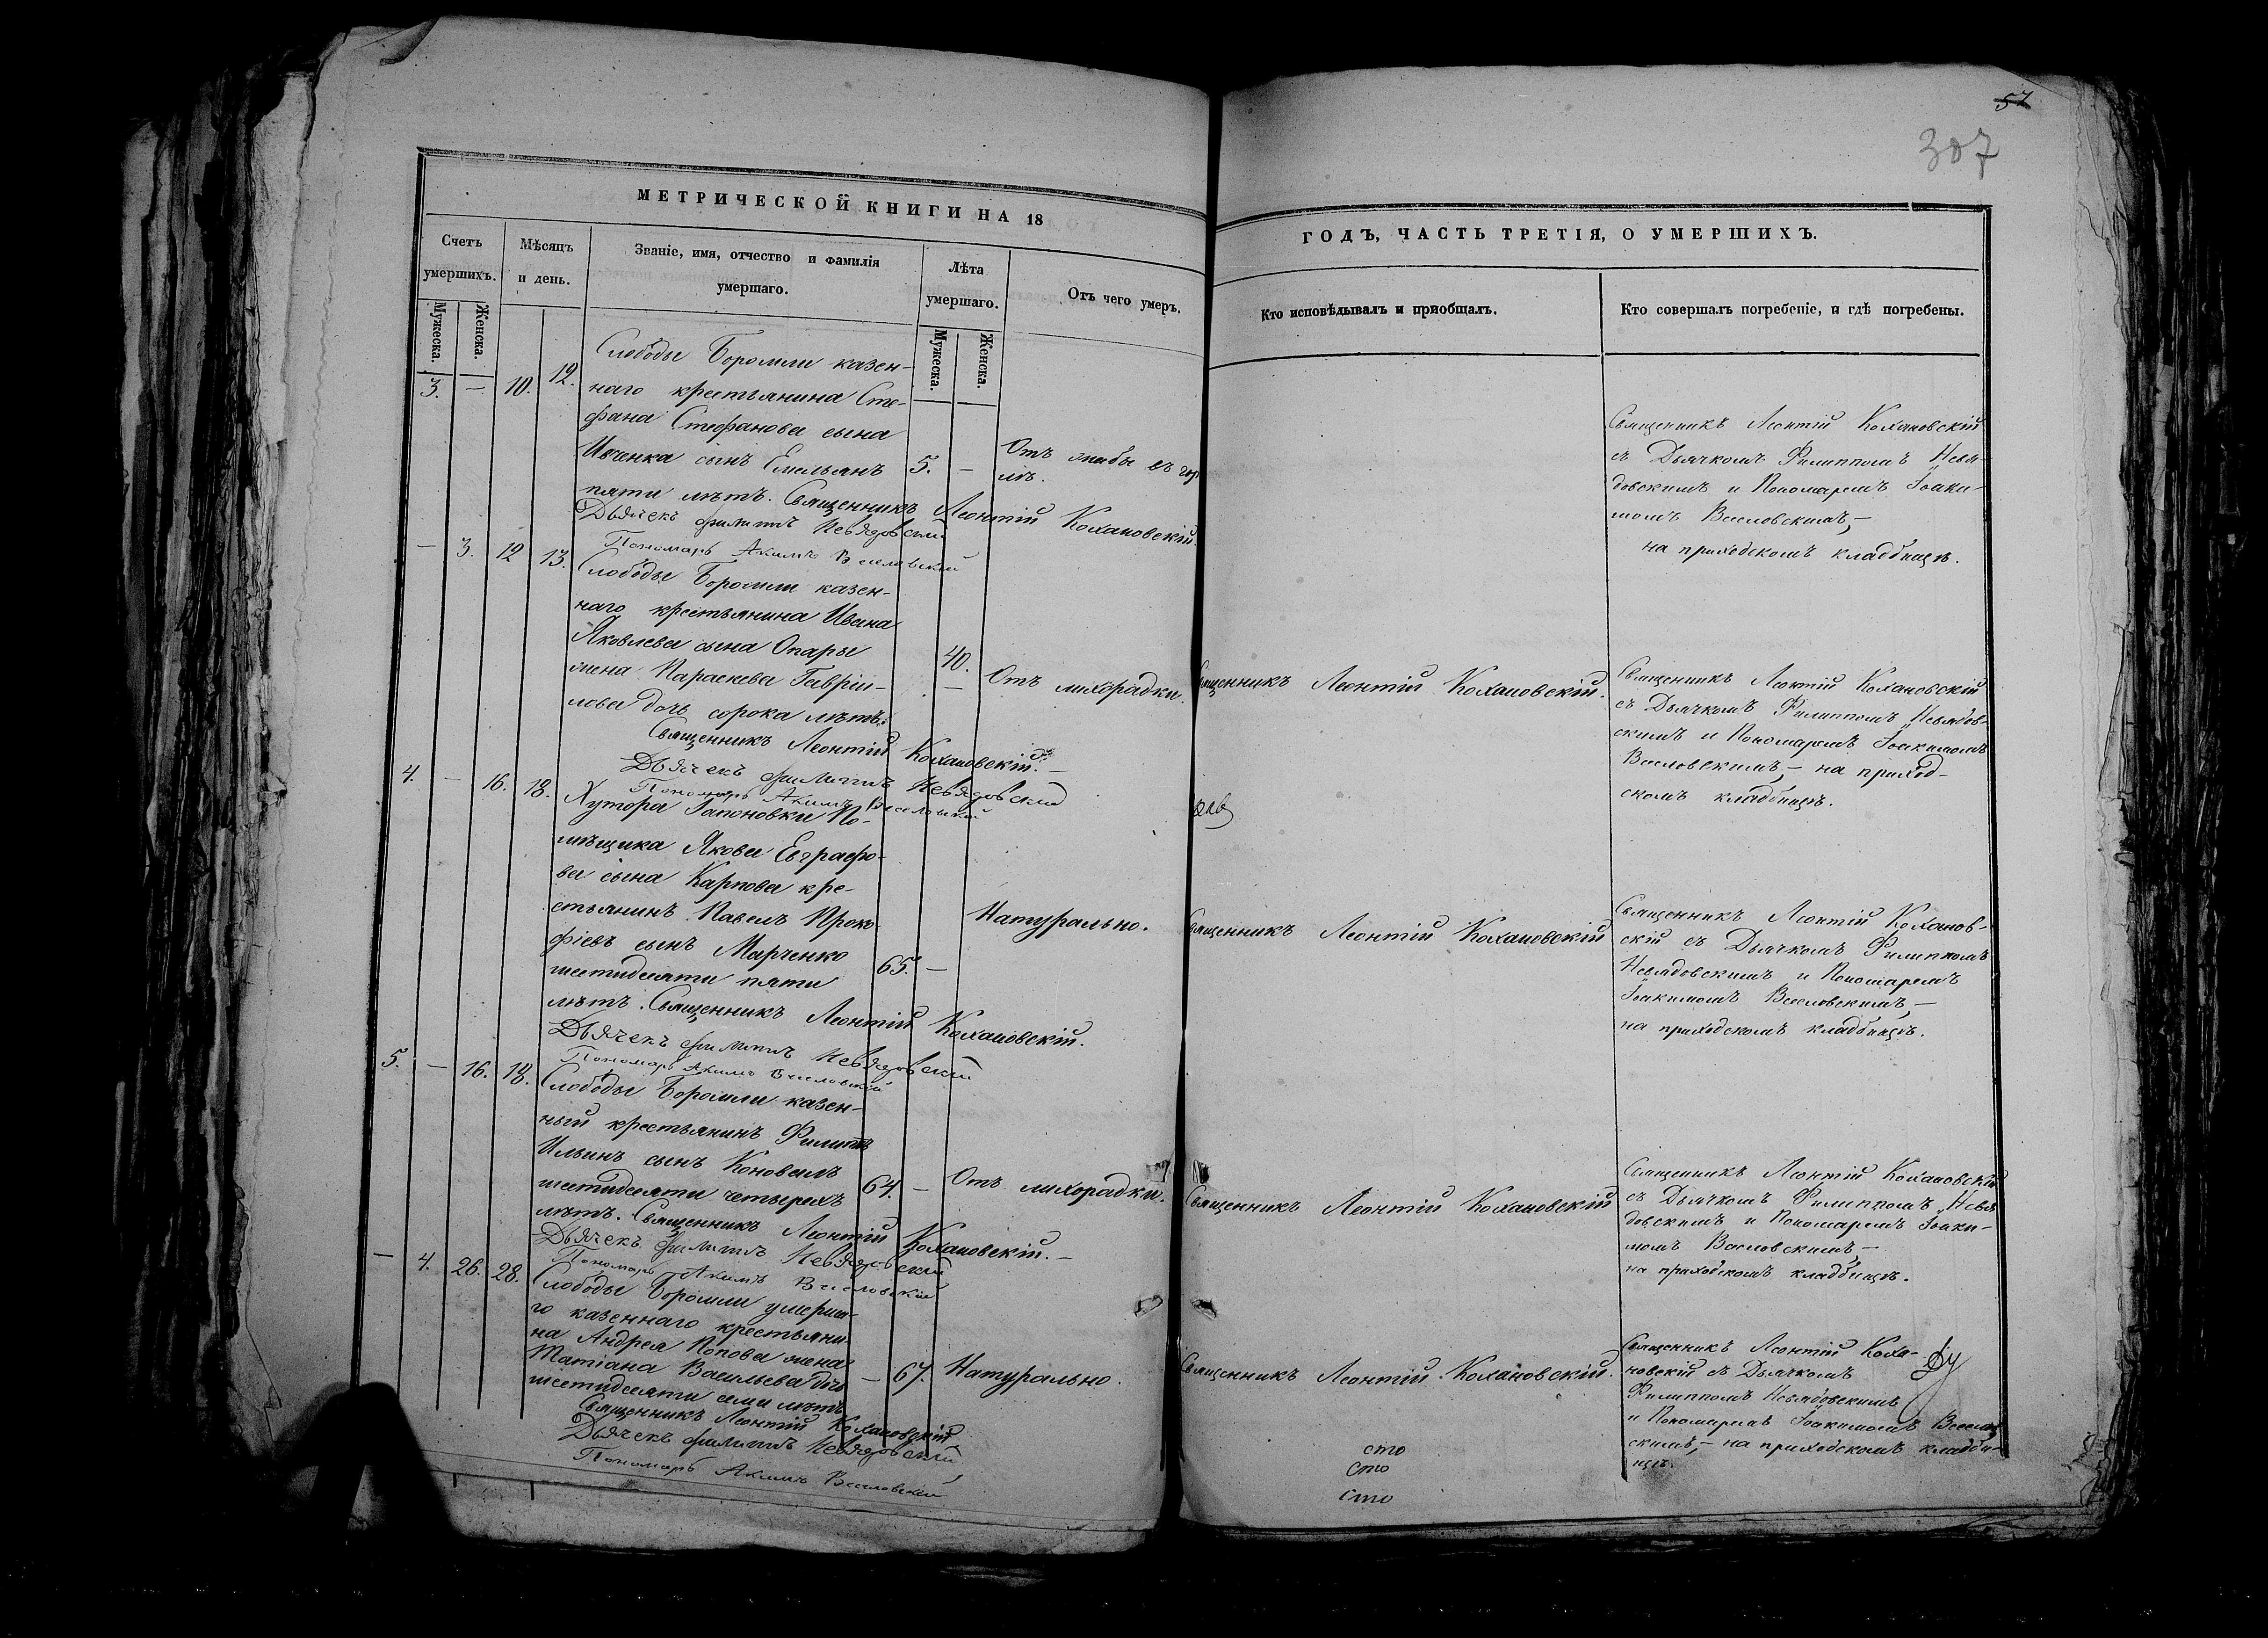 57
307
МЕТРИЧЕСКОЙ КНИГИ НА 18
Счетъ
умершихъ.
Мужеска.
Женска.
Мѣсяцъ
и день.
Званіе, имя, отчество и фамилія
умершаго.
Лѣта
умершаго.
Мужеска.
Женска.
Отъ чего умеръ.
ГОДЪ, ЧАСТЬ ТРЕТІЯ, О УМЕРШИХЪ.
Кто исповѣдывалъ и пріобщалъ.
Кто совершалъ погребеніе, и гдѣ погребены.
3. — 10. 12.
Слободы Боромли казен-
наго крестьянина Сте-
фана Стефанова сына
Ивченка сынъ Емельянъ 5. —
пяти лѣтъ. Священникъ Леонтій Кохановскій.
Дьячекъ Филиппъ Невядовскій
Пономарь Акимъ Веселовскій
Отъ жабы въ гор
лѣ.
Священникъ Леонтій Кохановскій
съ Дьячкомъ Филиппомъ Невя-
довскимъ и Пономаремъ Іоаки-
момъ Веселовскимъ, —
на приходскомъ кладбищѣ.
— 3. 12 13.
Слободы Боромли казен-
наго крестьянина Ивана
Яковлева сына Опары
жена Параскева Гавріи-
лова дочь сорока лѣтъ.
40.
—
Священникъ Леонтій Кохановскій. —
Дьячекъ Филиппъ Невядовскій
Пономарь Акимъ Веселовскій
Отъ лихорадки.
Священникъ Леонтій Кохановскій.
Священникъ Леонтій Кохановскій
съ Дьячкомъ Филиппомъ Невядов-
скимъ и Пономаремъ Іоакимомъ
Веселовскимъ, — на приход-
скомъ кладбищѣ.
4. — 16. 18.
Хутора Гапоновки По-
мѣщика Якова Евграфо-
ва сына Карпова кре-
стьянинъ Павелъ Проко-
фіевъ сынъ Марченко
шестидесяти пяти 65. —
лѣтъ. Священникъ Леонтій Кохановскій.
Дьячекъ Филиппъ Невядовскій
Пономарь Акимъ Веселовскій
Натурально.
Священникъ Леонтій Кохановскій
Священникъ Леонтій Коханов-
скій съ Дьячкомъ Филиппомъ
Невядовскимъ и Пономаремъ
Іоакимомъ Веселовскимъ, —
на приходскомъ кладбищѣ.
5. — 16. 18.
Слободы Боромли казен-
ный крестьянинъ Филиппъ
Ильинъ сынъ Коновалъ
шестидесяти четырехъ 64. —
лѣтъ. Священникъ Леонтій Кохановскій. —
Дьячекъ Филиппъ Невядовскій
Пономарь Акимъ Веселовскій
Отъ лихорадки.
Священникъ Леонтій Кохановскій
Священникъ Леонтій Кохановскій
съ Дьячкомъ Филиппомъ Невя
довскимъ и Пономаремъ Іоаки-
момъ Веселовскимъ, —
на приходскомъ кладбищѣ.
— 4. 26. 28.
Слободы Боромли умерша-
го казеннаго крестьяни-
на Андрея Попова жена
Татіана Васильева дочь — 67.
шестидесяти семи лѣтъ
Священникъ Леонтій Кохановскій
Дьячекъ Филиппъ Невядовскій
Пономарь Акимъ Веселовскій
Натурально.
Священникъ Леонтій Кохановскій.
Священникъ Леонтій Коха-
новскій съ Дьячкомъ
Филиппомъ Невядовскимъ
и Пономаремъ Іоакимомъ Веселов
скимъ, — на приходскомъ кладби-
щѣ.
сто
сто
сто